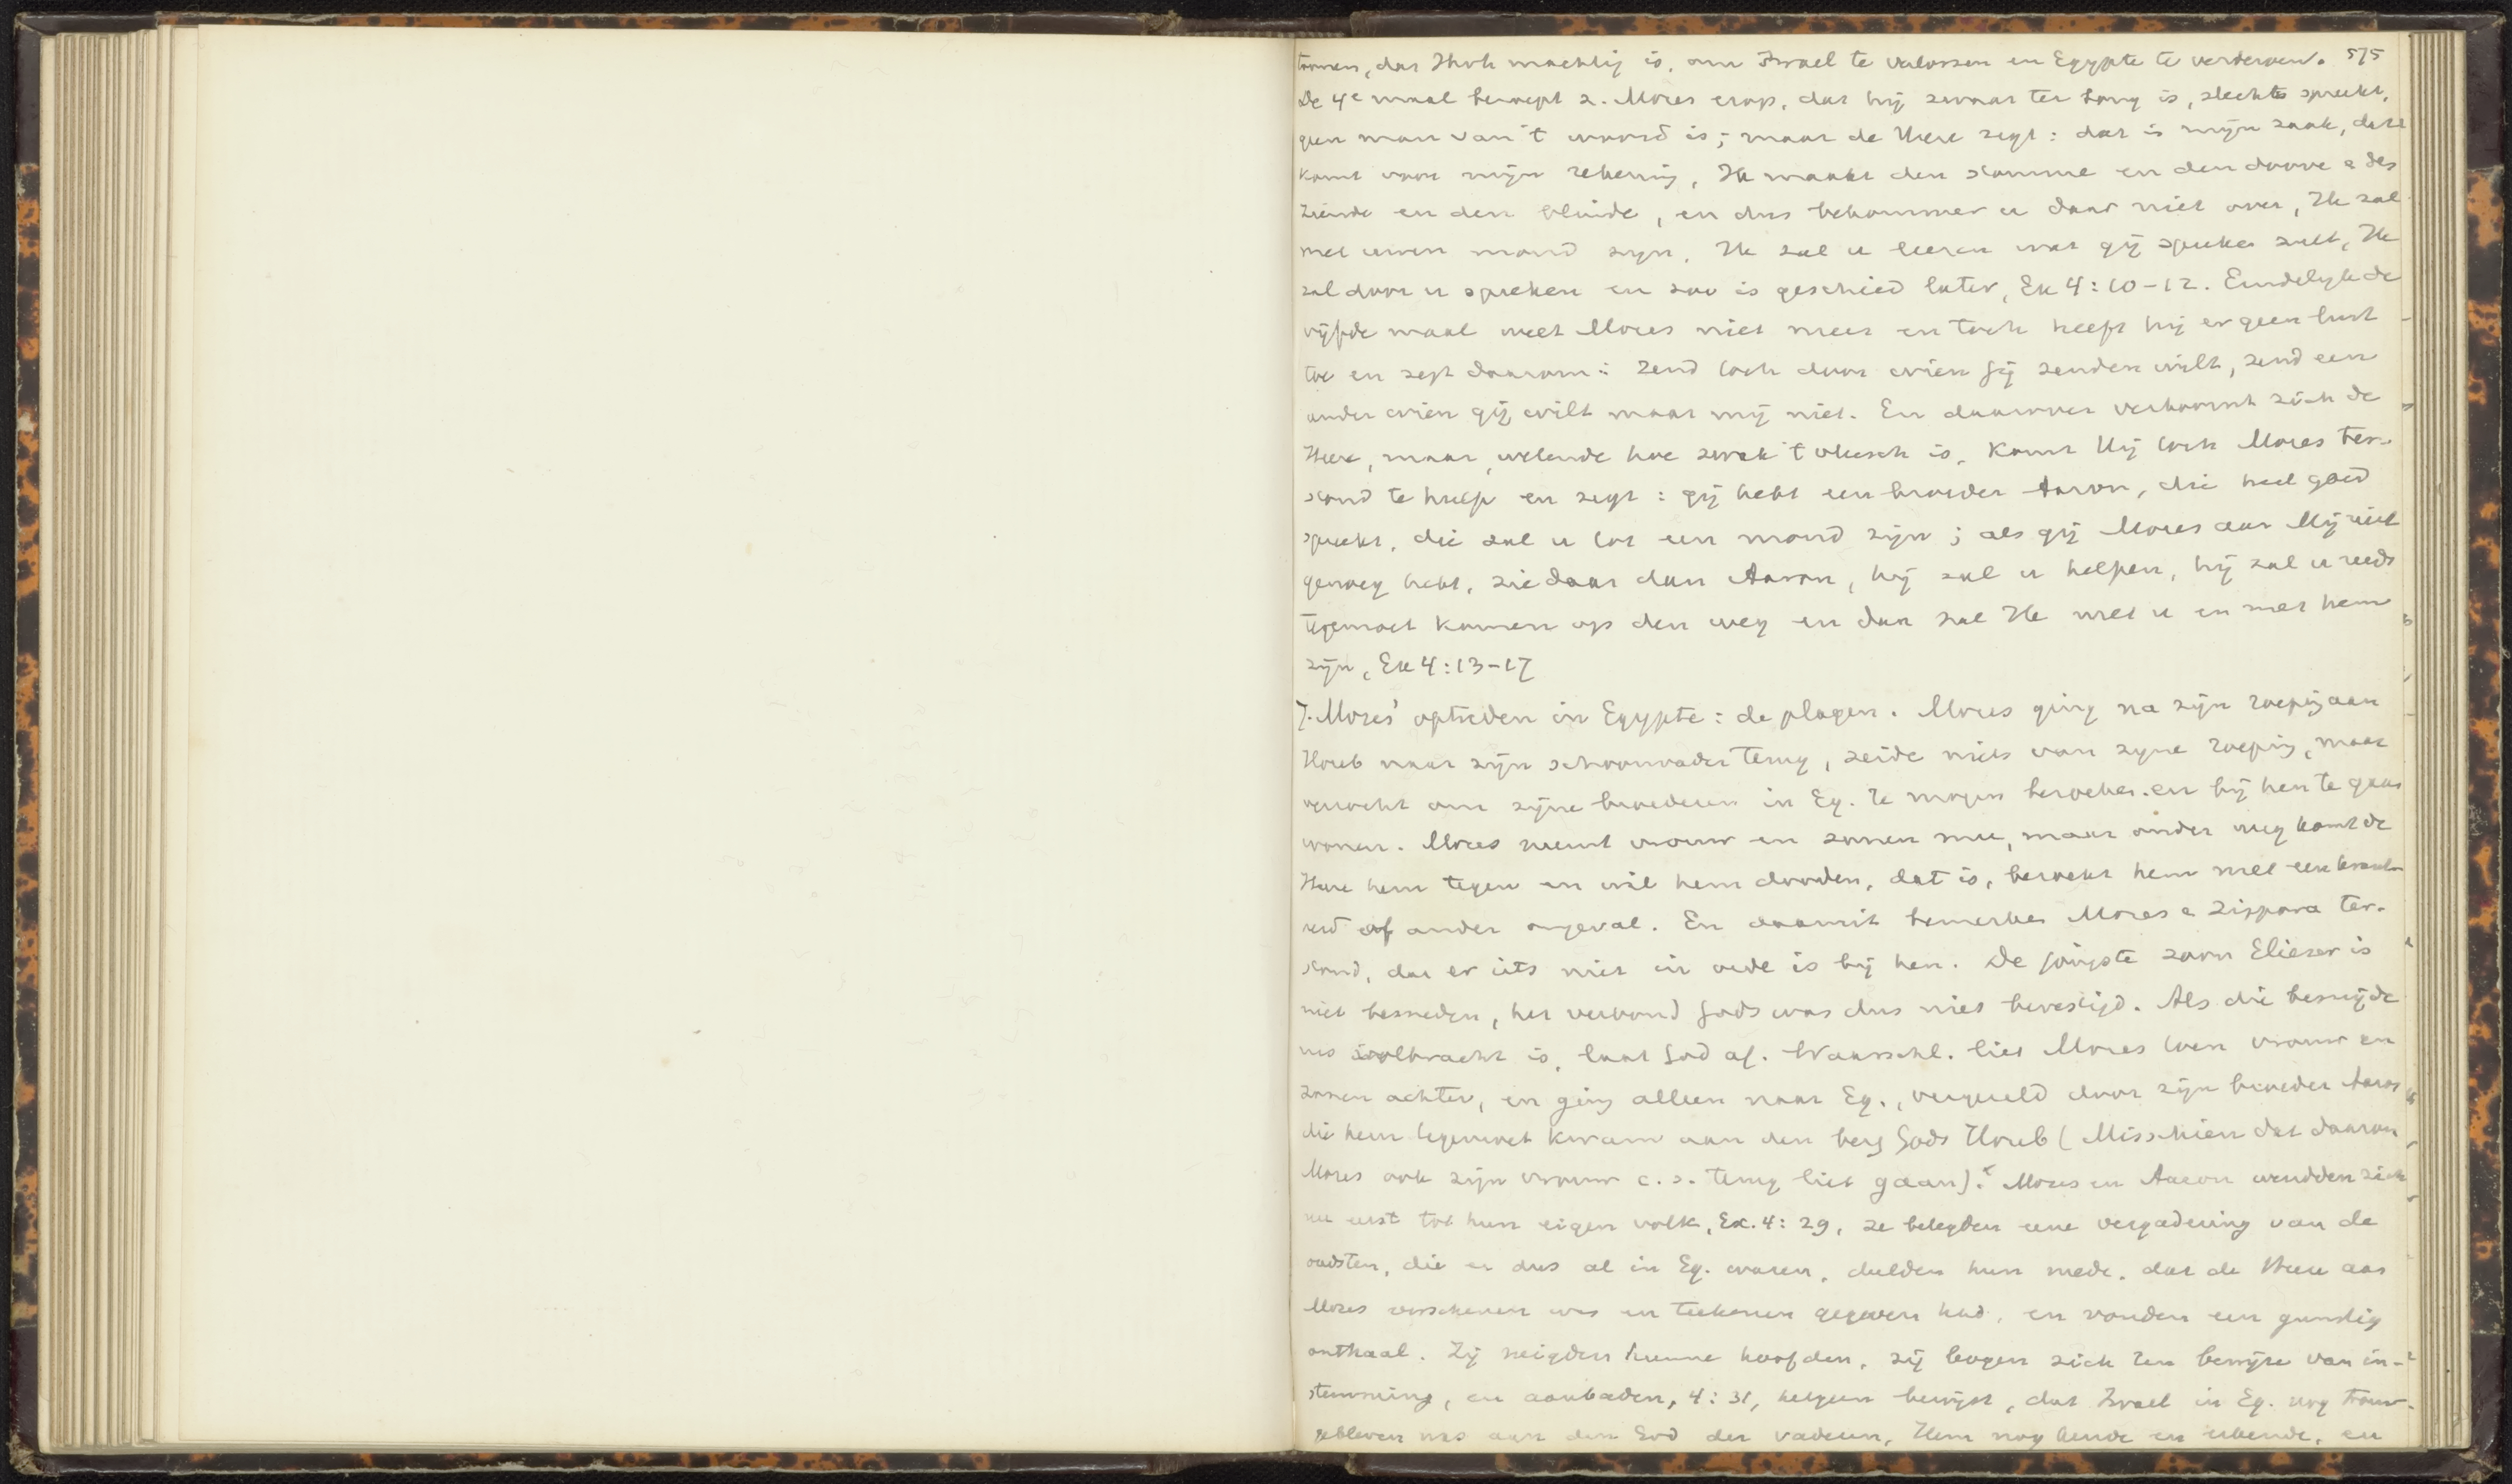 toonen, dat Jhvh machtig is, om Israel te verlossen en Egypte te verderven. 575
De 4e maal beroept z. Mozes erop, dat hij zwaar ter tong is, slecht spreekt,
geen man van 't woord is; maar de Heere zegt: dat is mijn zaak, dat
komt voor mijn rekening, Ik maakt den stomme en den doove e des
ziende en den blinde, en dus bekommer u daar niet over, Ik zal
met uwen mond zijn, Ik zal u leeren wat gij spreken zult, Ik
zal door u spreken en zoo is geschied later, Ex 4:10-12. Eindelijk de
vijfde maal weet Mozes niet meer en toch heeft hij er geen lust
toe en zegt daarom: Zend toch door wien Gij zenden wilt, zend een
ander wien gij wilt maar mij niet. En daarover vertoornt zich de
Heere, maar, wetende hoe zwak 't vleesch is, komt Hij toch Mozes ter-
stond te hulp en zegt: gij hebt een broeder Aaron, die heel goed
spreekt, die zal u tot een mond zijn; als gij Mozes aan Mij niet
genoeg hebt, ziedaar dan Aaron, hij zal u helpen, hij zal u reeds
tegemoet komen op den weg en dan zal Ik met u en met hem
zijn, Ex 4:13-17
7. Mozes' optreden in Egypte: de plagen. Mozes ging na zijn roeping aan
Horeb naar zijn schoonvader terug, zeide niets van zijne roeping, maar
verzocht om zijne broederen in Eg. te mogen bezoeken en bij hen te gaan
wonen. Mozes neemt vrouw en zonen mee, maar onder weg komt de
Heere hem tegen en wil hem dooden, dat is, bezoekt hem met een krank-
heid of ander ongeval. En daaruit bemerken Mozes e Zippora ter-
stond, dat er iets niet in orde is bij hen. De jongste zoon Eliezer is
niet besneden, het verbond Gods was dus niet bevestigd. Als die besnijde
nis volbracht is, laat God af. Waarschl. liet Mozes toen vrouw en
zonen achter, en ging alleen naar Eg., vergezeld door zijn broeder Aaron
die hem tegemoet kwam aan den berg Gods Horeb (Misschien dat daarom
Mozes ook zijn vrouw c.s. terug liet gaan). Mozes en Aaron wendden zich
nu eerst tot hun eigen volk, Ex. 4:29, ze belegden eene vergadering van de
oudsten, die er dus al in Eg. waren, deelden hun mede, dat de Heere aan
Mozes verschenen was en teekenen gegeven had, en vonden een gunstig
onthaal. Zij neigden hunne hoofden, zij bogen zich ten bewijze van in-
stemming, en aanbaden, 4:31, hetgeen bewijst, dat Israel in Eg. nog trouw
gebleven was aan den God der vaderen, Hem nog kende en erkende, en